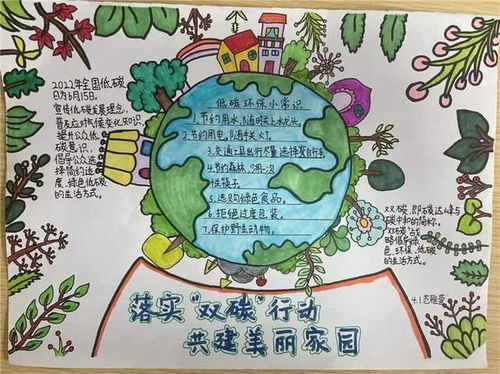 2022年全国低碳
日为6月15日。
宣传低碳发展理念,
普及应对气候变化知识,
提升公众低
碳意识,
倡导公众选
择简约适
度、绿色低碳
的生活方式。
低碳环保小常识
1.节约用水,随时关上水龙头。
2.节约用电,随手关灯。
3.交通工具出行尽量选择
4.节约森林,少用一次
性筷子。
5.选购绿色食品。
6.拒绝过度包装。
7.保护野生动物。
双碳,即碳达峰与
碳中和的简称。
双碳战
略倡导绿
色、环保、低碳
的生活方式。
落实“双碳”行动
共建美丽家园
4.1